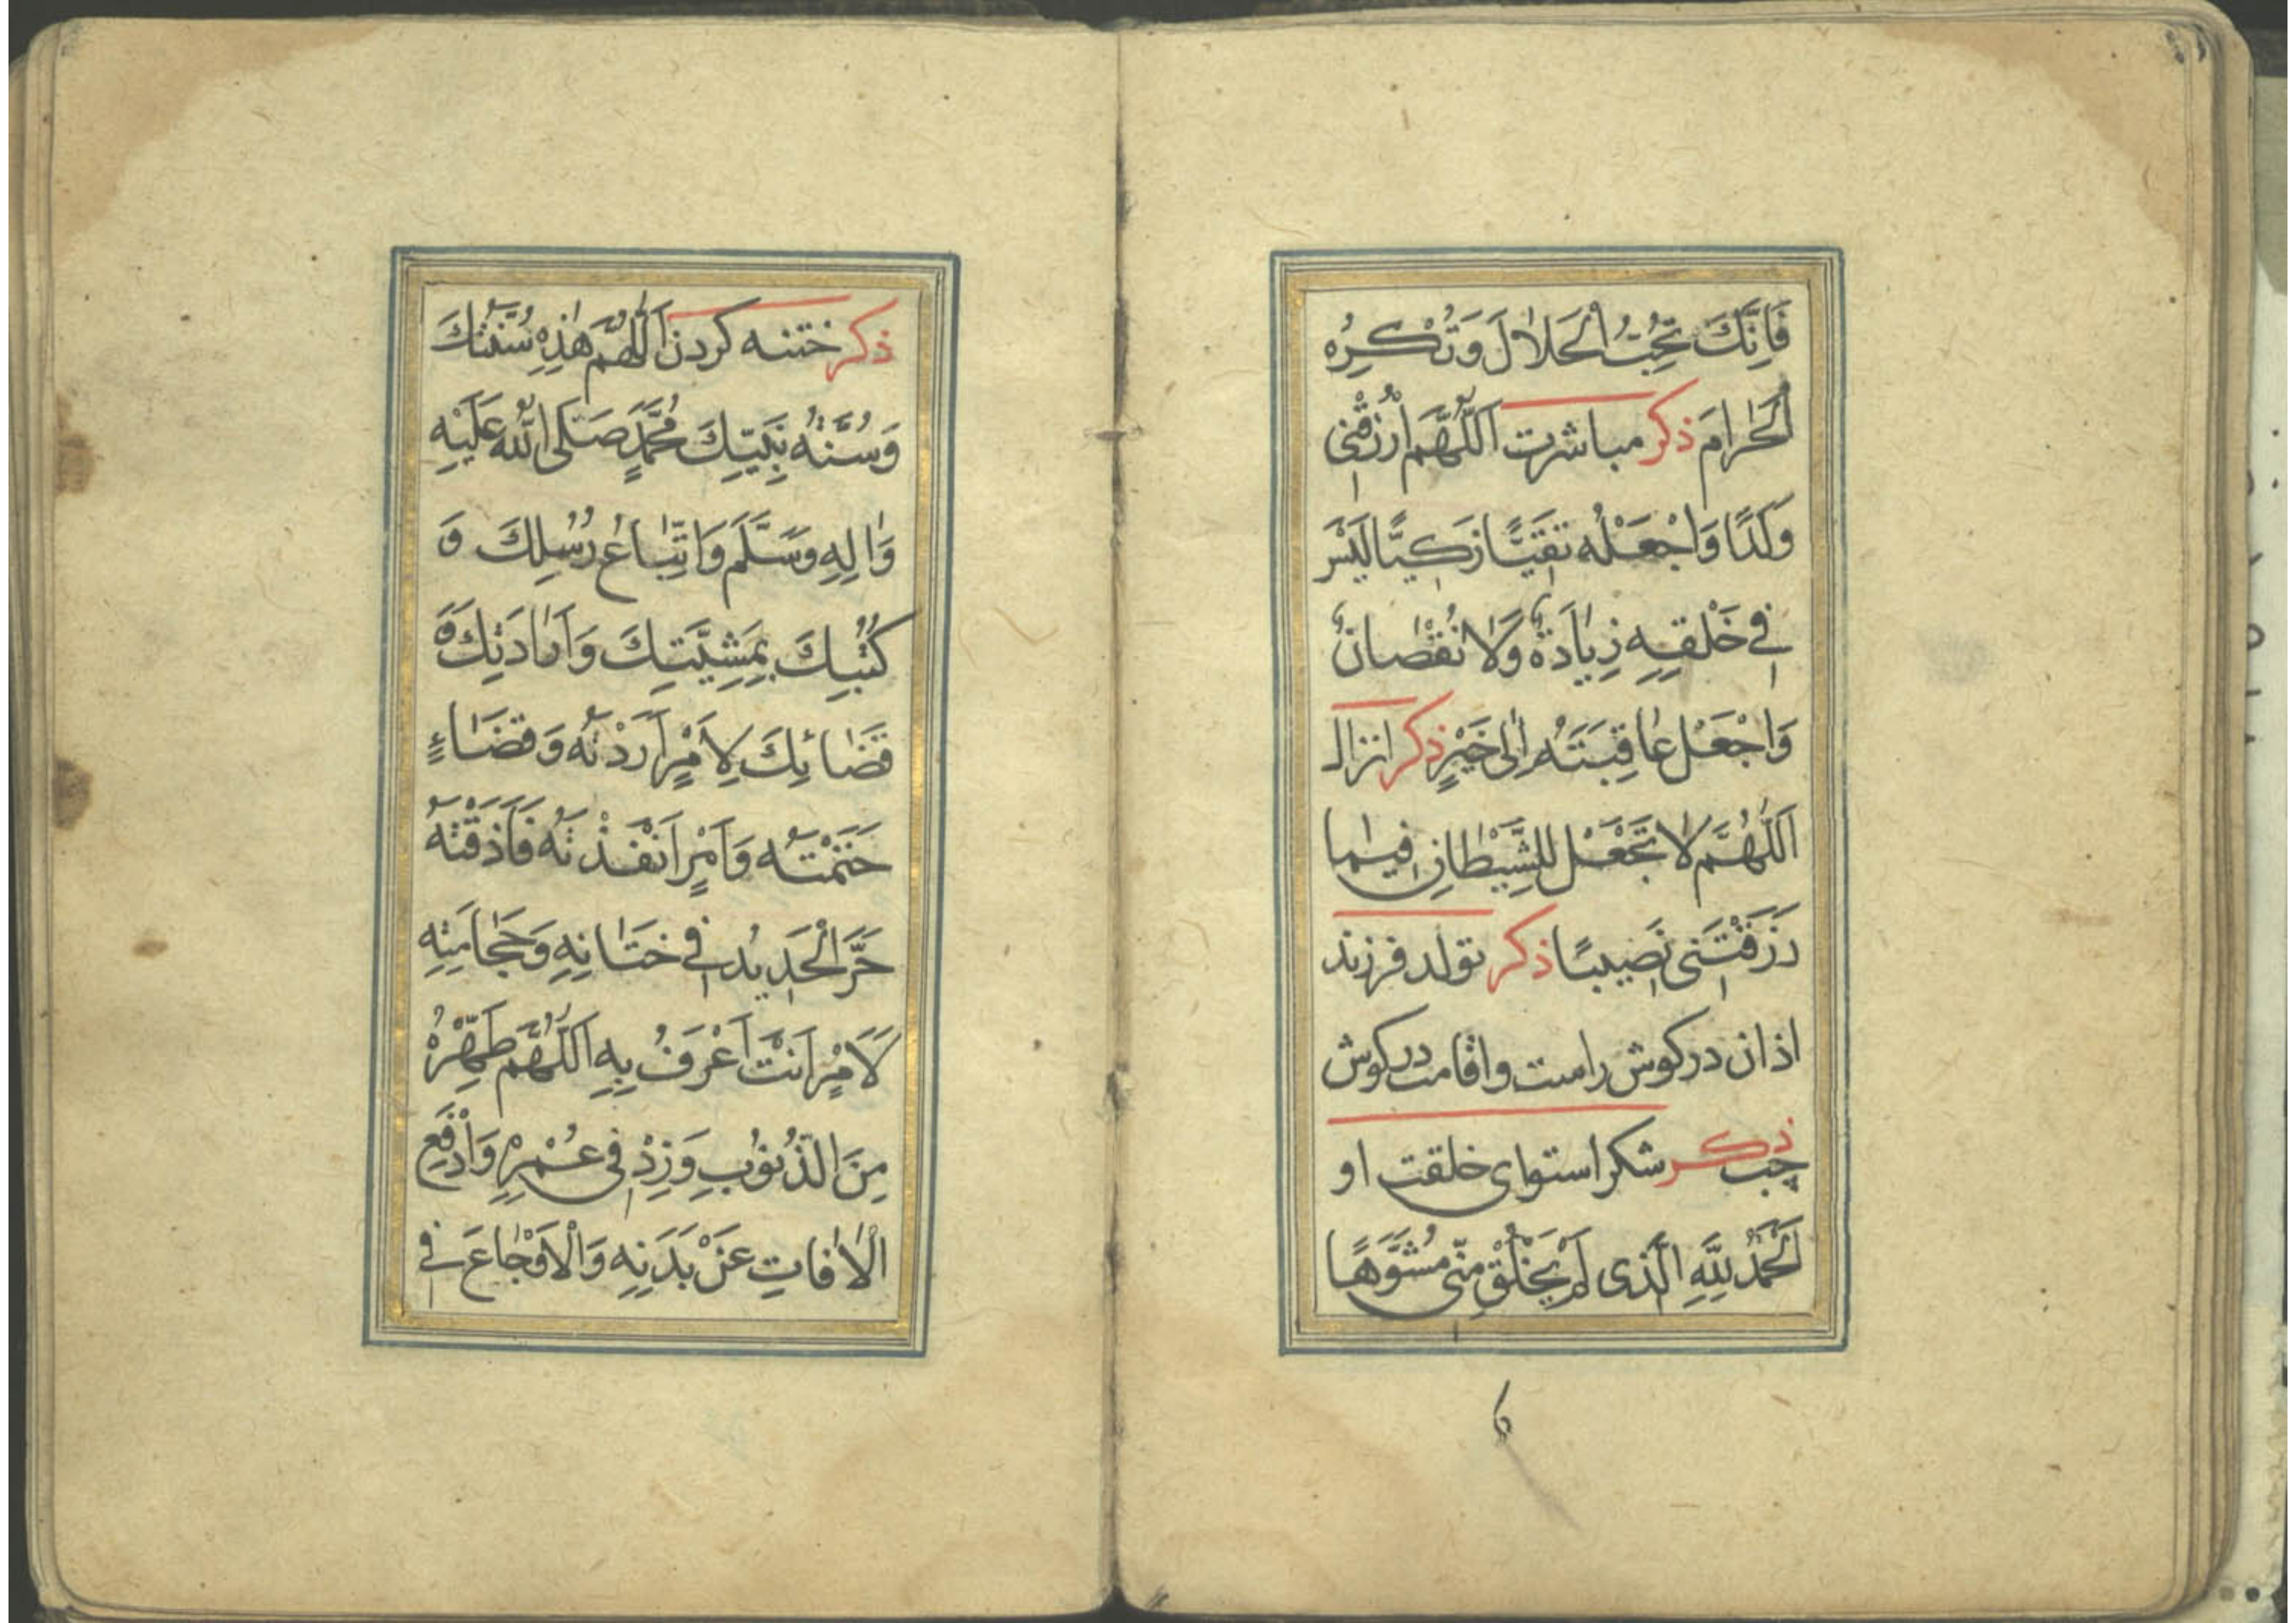 فَاِنَّكَ تُحِبُّ الْحَلَالَ وَتُكْرِهُ
الْحَرَامَ ذكر مباشرت اَللّٰهُمَّ ارْزُقْنِی
وَلَدًا وَاجْعَلْهُ تَقِیًّا زَكِیًّا لَیْسَ
فِی خَلْقِهِ زِیَادَةٌ وَلَا نُقْصَانٌ
وَاجْعَلْ عَاقِبَتَهُ اِلٰی خَیْرٍ ذكر انزال
اَللّٰهُمَّ لَا تَجْعَلْ لِلشَّیْطَانِ فِیمَا
رَزَقْتَنِی نَصِیبًا ذكر تولد فرزند
اذان در كوش راست واقامت در كوش
چپ ذكر شكر استوای خلقت او
اَلْحَمْدُ لِلّٰهِ الَّذِی لَمْ یَخْلُقْ مِنِّی مُشَوَّهًا
ذكر ختنه كردن اَللّٰهُمَّ هٰذِهِ سُنَّتُكَ
وَسُنَّةُ نَبِیِّكَ مُحَمَّدٍ صَلَّی اللّٰهُ عَلَیْهِ
وَاٰلِهِ وَسَلَّمَ وَاتِّبَاعُ رُسُلِكَ وَ
كُتُبِكَ بِمَشِیَّتِكَ وَاَرَادَتِكَ وَ
قَضَائِكَ لِاَمْرٍ اَرَدْتَهُ وَقَضَاءٍ
حَتَمْتَهُ وَاَمْرٍ اَنْفَذْتَهُ فَاَذَقْتَهُ
حَرَّ الْحَدِیدِ فِی خِتَانِهِ وَحَجَامَتِهِ
لَاَمْرٍ اَنْتَ اَعْرَفُ بِهِ اَللّٰهُمَّ طَهِّرْهُ
مِنَ الذُّنُوبِ وَزِدْ فِی عُمْرِهِ وَادْفَعِ
الْاٰفَاتِ عَنْ بَدَنِهِ وَالْاَوْجَاعَ فِی